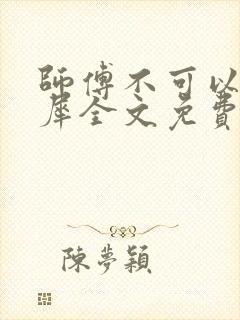 師傅不可以
犀全文免費
陳夢穎